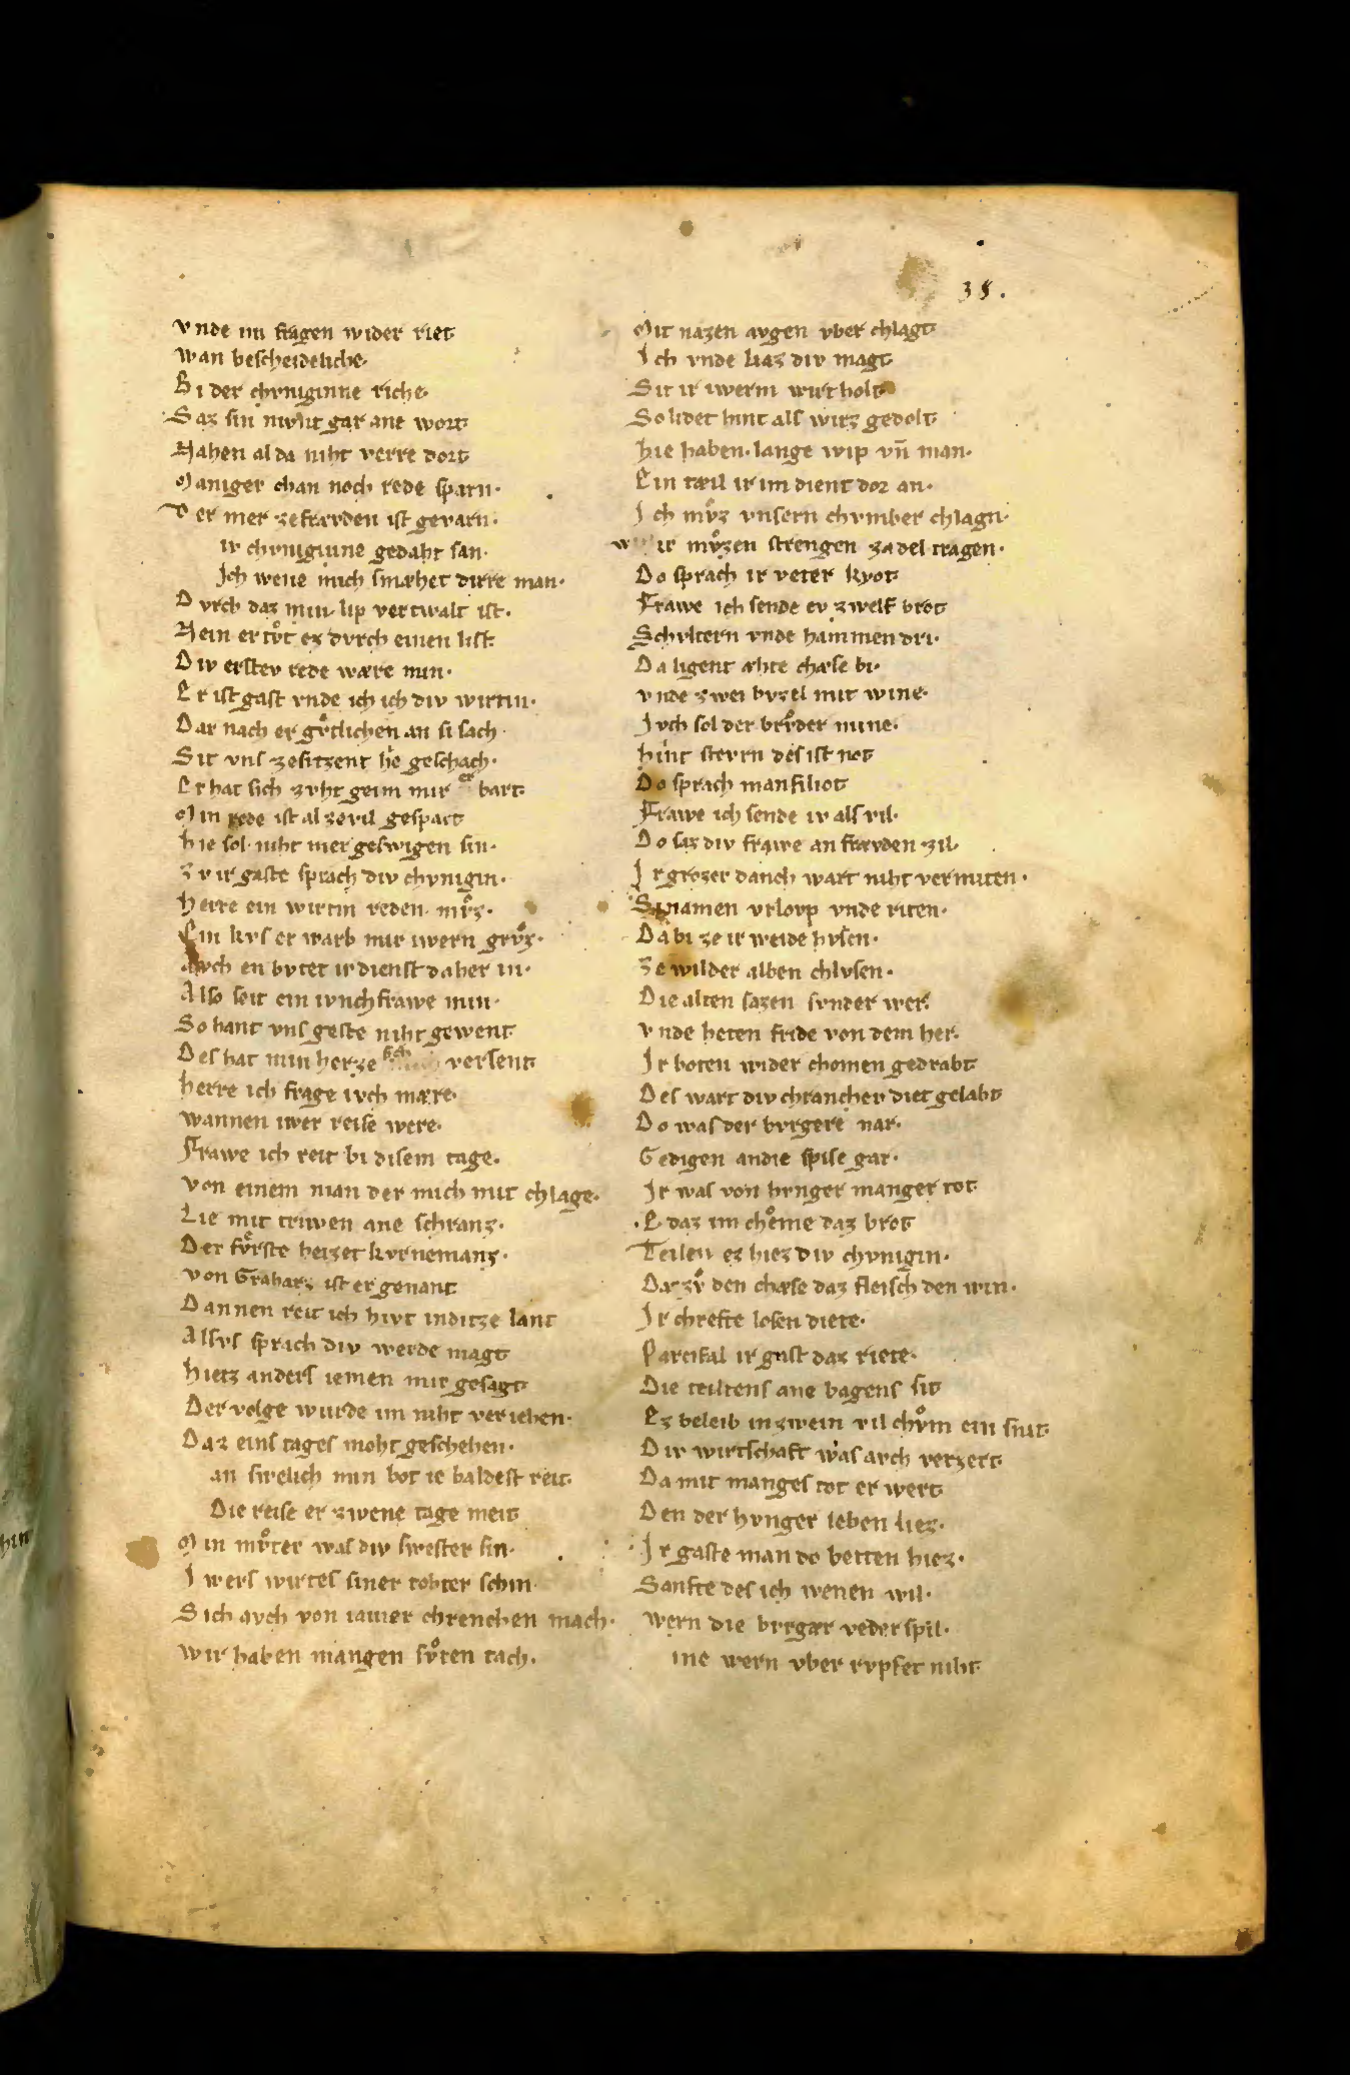 38.
vnde im fragen wider riet
wan bescheideliche·
Bi der chvniginne riche·
Saz sin mvnt gar ane wort
Nahen al da niht verre dort
Maniger chan noch rede sparn·
Der mer ze frævden ist gevarn·
iv chvniginne gedaht san·
Ich wene mich smæhet dirre man·
Dvrch daz min lip vertwalt ist·
Nein er tvͦt ez dvrch einen list·
Div erstev rede wære min·
Er ist gast vnde ich ich div wirtin·
Dar nach er gvͤtlichen an si sach·
Sit vns ze sitzent he geschach·
Er hat sich zvht geim mir er bart
Min rede ist al ze vil gespart
hie sol niht mer geswigen sin·
Zv ir gaste sprach div chvnigin·
herre ein wirtin reden mvͦz·
Ein kvs er warb mir iwern grvͦz·
Avch en bvtet ir dienst da her in·
Also seit ein ivnchfrawe min·
So hant vns geste niht gewent
Des hat min herze sich versent
herre ich frage ivch mære·
wannen iwer reise were·
Frawe ich reit bi disem tage·
von einem man der mich mit chlage·
Lie mit triwen ane schranz·
Der fvͤrste heizet kvrnemanz·
von Graharz ist er genant
Dannen reit ich hivt in ditze lant
Alsvs sprach div werde magt
hietz anders iemen mir gesagt
Der volge wurde im niht veriehen·
Daz eins tages moht geschehen·
an swelich min bot ie baldest reit·
Die reise er zwene tage meit
Min mvͦter was div swester sin·
Iwers wirtes siner tohter schin·
Sich avch von iamer chrenchen mach·
wir haben mangen svͦren tach·
Mit nazen avgen vber chlagt
Ich vnde liaz div magt
Sit ir iwerm wirt holt
So lidet hint als wirz gedolt
hie haben· lange wip vn̄ man·
Ein tæil ir im dient dor an·
Ich mvͦz vnsern chvmber chlagn·
wir mvͦzen strengen zadel tragen·
Do sprach ir veter kyot
Frawe ich sende ev zwelf brot
Schvltern vnde hammen dri·
Da ligent æhte chæse bi·
vnde zwei bvzel mit wine·
Ivch sol der brvͦder mine·
hint stevrn des ist not
Do sprach manfiliot
Frawe ich sende iv als vil·
Do saz div frawe an frævden zil·
Ir grozer danch wart niht vermiten·
Si namen vrlovp vnde riten·
Da bi ze ir weide hvsen·
Ze wilder alben chlvsen·
Die alten sazen svnder wer·
vnde heten fride von dem her·
Ir boten wider chomen gedrabt
Des wart div chrancher diet gelabt
Do was der bvrgere nar·
Gedigen an die spise gar·
Ir was von hvnger manger tot
E daz im chͦeme daz brot
Teilen ez hiez div chvnigin·
Dar zvͦ den chæse daz fleisch den win·
Ir chrefte losen diete·
Parcifal ir gast daz riete·
Die teiltens ane bagens sit
Ez beleib in zwein vil chvͦm ein snit·
Div wirtschaft was avch verzert
Da mit manges tot er wert
Den der hvnger leben liez·
Ir gaste man do betten hiez·
Sanfte des ich wenen wil·
wern die bvrgær vederspil·
ine wern vber kvpfet niht